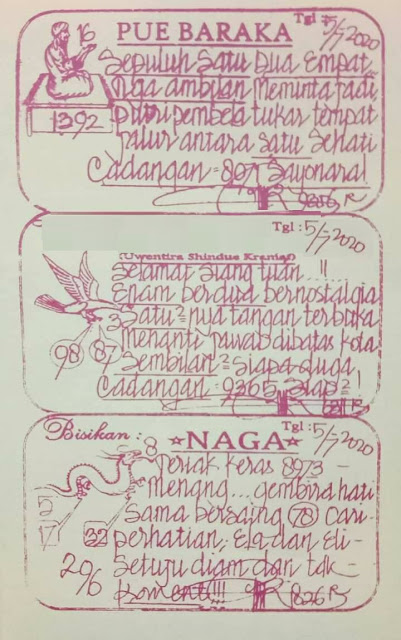 PUE BARAKA
Tgl : 5/7 2020
16
1392
Sepuluh Satu Dua Empat
Tiga ambilan Meminta jadi
Putri pembela tukar tempat
Jalur antara satu Sehati
Cadangan = 897 Sayonara!
Tgl : 5/7 2020
(Uwentira Shindue Kramat)
Selamat Siang tuan...!!
Enam berdua bernostalgia
Satu = Dua tangan terbuka
Menanti jawab dibatas kota
98 87
Sembilan = Siapa duga
Cadangan = 9365 Siap = !
Bisikan :
NAGA
Tgl : 5/7 2020
8
Teriak keras 8973 -
menang... gembira hati
5
Sama bersaing 78 Cari-
17 32
perhatian, Ela dan Eli -
Setuju diam dan tak -
206
Koment!!!